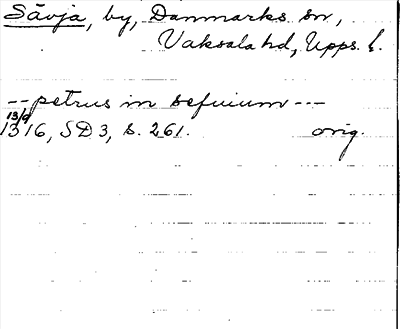 Sävja, by, Danmarks sn,
Vaksala hd, Upps. l.
-- petrus in sefuium ---
13/6
1316, SD 3, s. 261. orig.